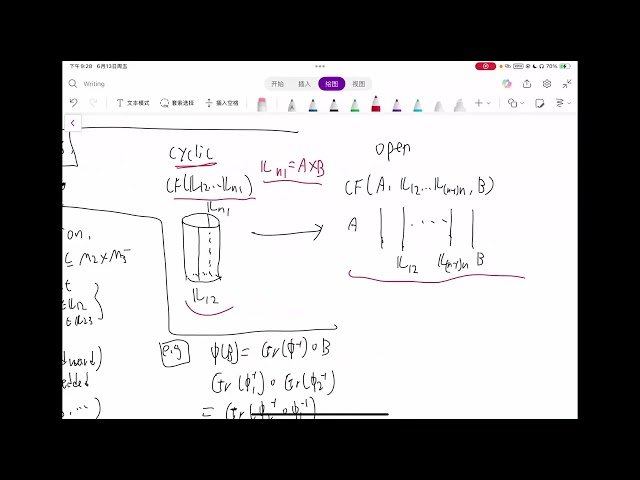 下午9:28 6月13日周五
70%
Writing
开始 插入 绘图 视图
文本模式 套索选择 插入空格
cyclic
CF(𝕃12…𝕃n1)
𝕃n1 = A×B
𝕃n1
𝕃12
open
CF(A, 𝕃12…𝕃(n-1)n, B)
A
B
𝕃12 𝕃(n-1)n
ion,
⊆ M2×M3
∈ 𝕃12
∈ 𝕃23
edded
e.g
φ(B) = Gr(φ⁻¹)∘B
Gr(φ1⁻¹)∘Gr(φ2⁻¹)